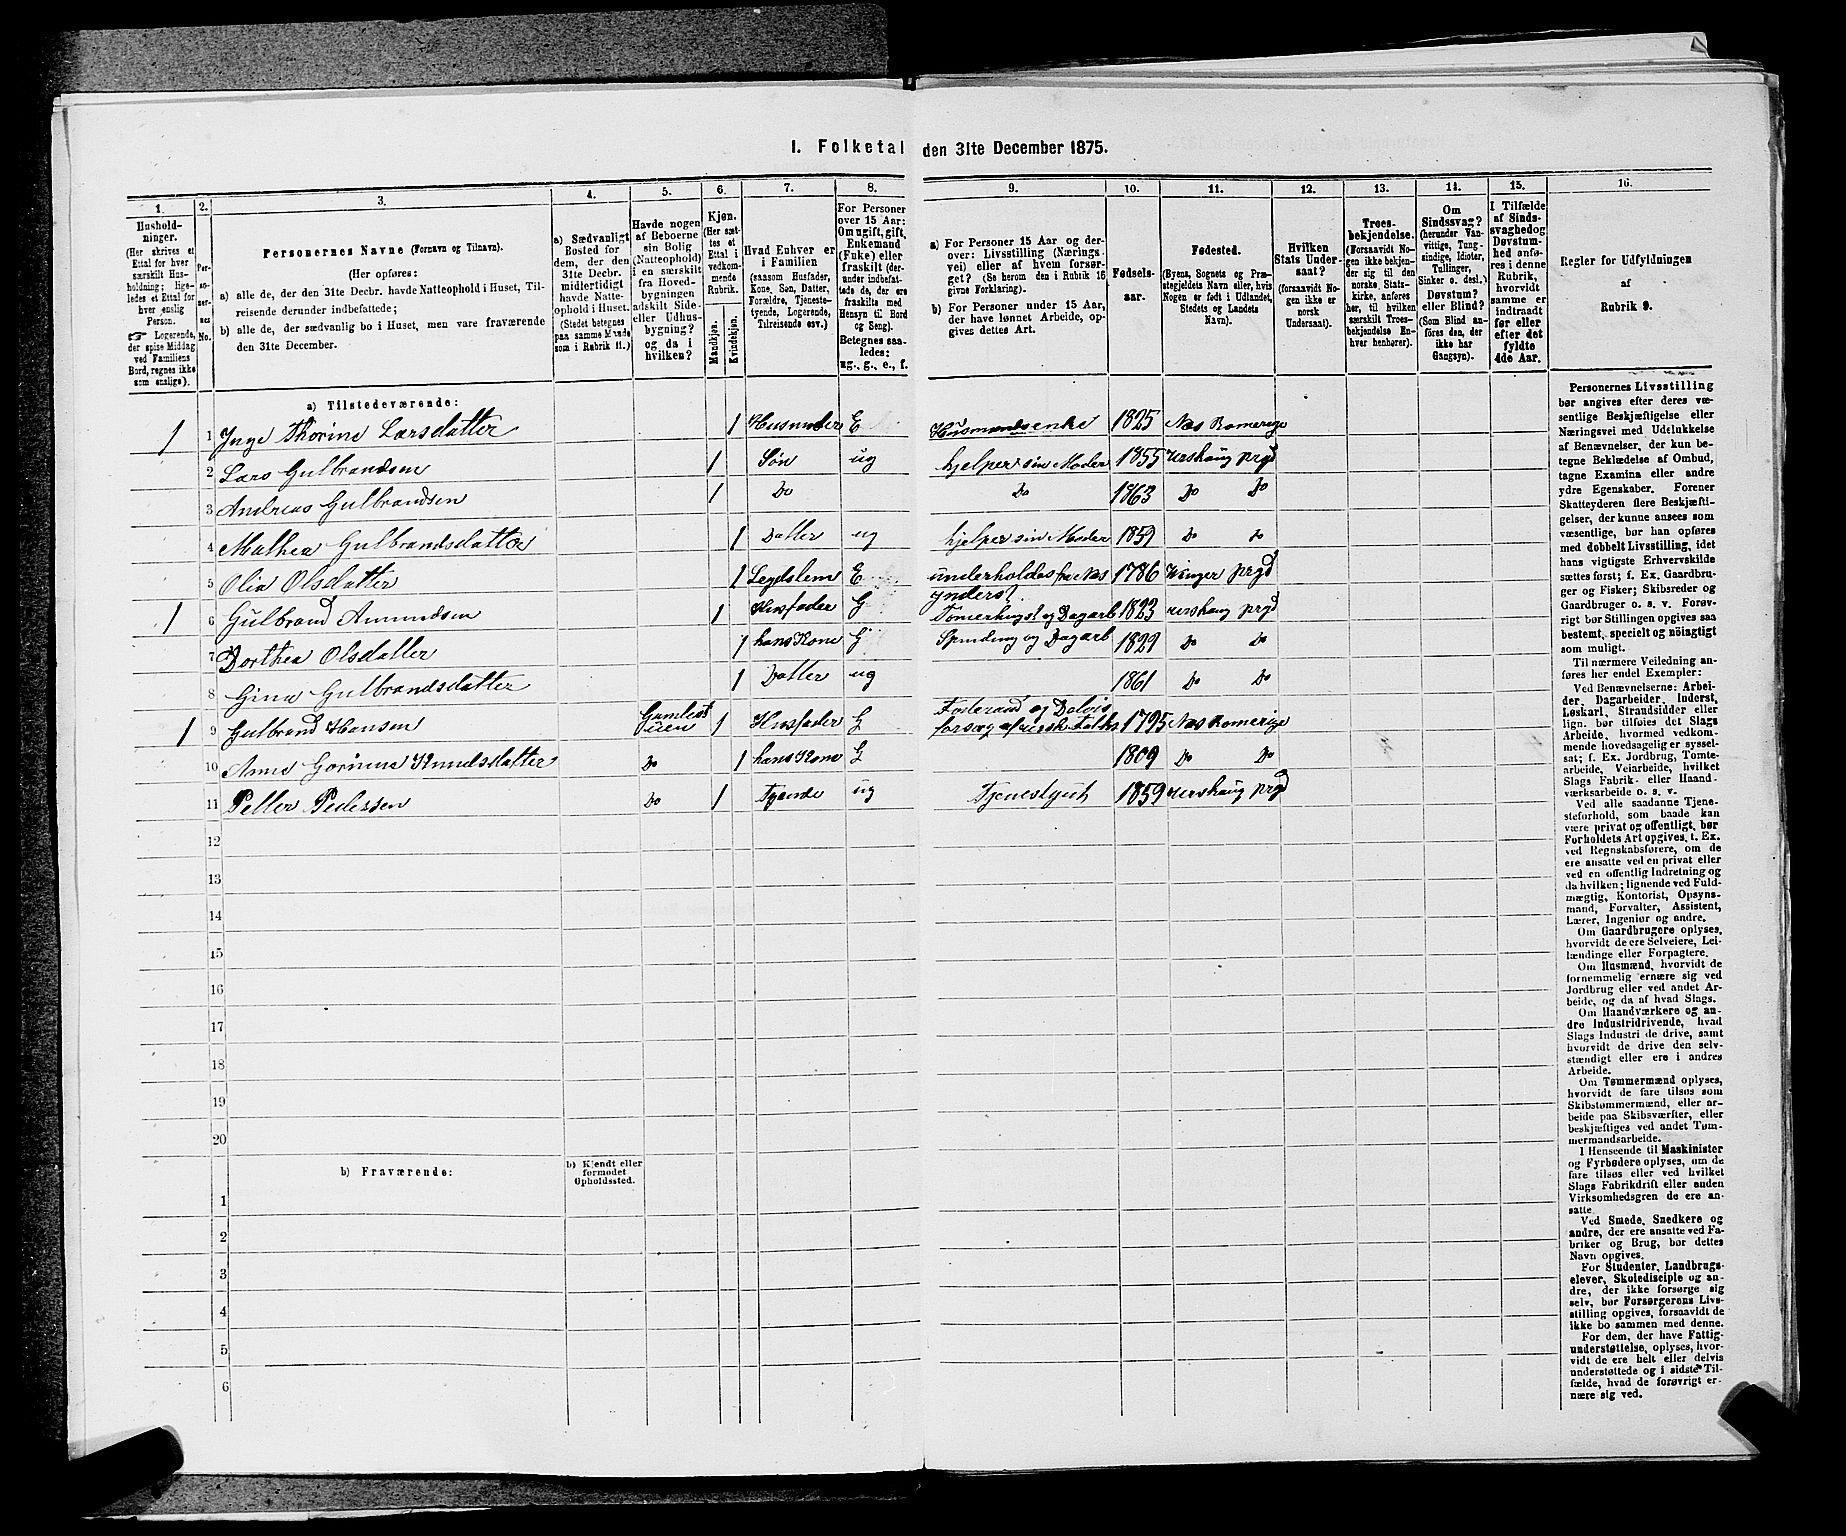 I. Folketal den 31te December 1875.
1. 2. 3. 4. 5. 6. 7. 8. 9. 10. 11. 12. 13. 14. 15. 16.
Hushold-
ninger.
(Her skrives et
Ettal for hver
særskilt Hus-
holdning; lige-
ledes et Ettal for
hver enslig
Person.
☞ Logerende,
der spise Middag
ved Familiens
Bord, regnes ikke
som enslige).
Per-
so-
ner-
nes
No.
Personernes Navne (Fornavn og Tilnavn).
(Her opføres:
a) alle de, der den 31te Decbr. havde Natteophold i Huset, Til-
reisende derunder indbefattede;
b) alle de, der sædvanlig bo i Huset, men vare fraværende
den 31te December.
a) Sædvanligt
Bosted for
dem, der den
31te Decbr.
midlertidigt
havde Natte-
ophold i Huset.
(Stedet betegnes
paa samme Maade
som i Rubrik 11.)
Havde nogen
af Beboerne
sin Bolig
(Natteophold)
i en særskilt
fra Hoved-
bygningen
adskilt Side-
eller Udhus-
bygning?
og da i
hvilken?
Kjøn.
(Her sæt-
tes et
Ettal i
vedkom-
mende
Rubrik.
Mandkjøn.
Kvindekjøn.
Hvad Enhver er
i Familien
(saasom Husfader,
Kone, Søn, Datter,
Forældre, Tjeneste-
tyende, Logerende,
Tilreisende osv.)
For Personer
over 15 Aar:
Om ugift, gift,
Enkemand
(Fuke) eller
fraskilt (der-
under indbefat-
tede de, der ere
fraskilte med
Hensyn til Bord
og Seng).
Betegnes saa-
ledes:
ug., g., e., f.
a) For Personer 15 Aar og der-
over: Livsstilling (Nærings-
vei) eller af hvem forsør-
get? (Se herom den i Rubrik 16
givne Forklaring).
b) For Personer under 15 Aar,
der have lønnet Arbeide, op-
gives dettes Art.
Fødsels-
aar.
Fødested.
(Byens, Sognets og Præ-
stegjeldets Navn eller, hvis
Nogen er født i Udlandet,
Stedets og Landets
Navn).
Hvilken
Stats Under-
saat?
(forsaavidt No-
gen ikke er
norsk
Undersaat).
Troes-
bekjendelse.
(Forsaavidt No-
gen ikke bekjen-
der sig til den
norske Stats-
kirke, anføres
her, til hvilken
særskilt Troes-
bekjendelse En-
hver henhører).
Om
Sindssvag?
(herunder Van-
vittige, Tung-
sindige, Idioter,
Tullinger,
Sinker o. desl.)
Døvstum?
eller Blind?
(Som Blind an-
føres den, der
ikke har
Gangsyn).
I Tilfælde
af Sinds-
svaghed og
Døvstum-
hed anfø-
res i denne
Rubrik,
hvorvidt
samme er
indtraadt
før eller
efter det
fyldte
4de Aar.
Regler for Udfyldningen
af
Rubrik 9.
a) Tilstedeværende:
1 1 Inge Thorine Larsdatter 1 Husmoder E Husmandsenke 1825 Næs Romerige
2 Lars Gulbrandsen 1 Søn ug hjelper sin Moder 1855 Urskoug prgd
3 Andreas Gulbrandsen 1 Do Do 1863 Do Do
4 Mathea Gulbrandsdatter 1 Datter ug hjelper sin Moder 1859 Do Do
5 Olia Olsdatter 1 Legdslem E underholdes fra Næs 1786 Winger prgd
1 6 Gulbrand Amundsen 1 Husfader G ynderst. Tømerhugst og Dagarb 1823 Urskoug prgd
7 Dorthea Olsdatter 1 hans Kone G Spinding og Dagarb 1829 Do Do
8 Gina Gulbrandsdatter 1 Datter ug 1861 Do Do
1 9 Gulbrand Hansen 1 Husfader G Foderaad og Delvis 1795 Næs Romerige
10 Anne Knudsdatter Do 1 hans Kone G 1809 Do Do
11 Petter Pedersen Do 1 Tyende ug Tjenestgut 1859 Urskoug prgd
12
13
14
15
16
17
18
19
20
b) Fraværende:
b) Kjendt eller
formodet
Opholdssted.
1
2
3
4
5
6
Personernes Livsstilling
bør angives efter deres væ-
sentlige Beskjæftigelse eller
Næringsvei med Udelukkelse
af Benævnelser, der kun be-
tegne Beklædelse af Ombud,
tagne Examina eller andre
ydre Egenskaber. Forener
Skatteyderen flere Beskjæfti-
gelser, der kunne ansees som
væsentlige, bør han opføres
med dobbelt Livsstilling, idet
hans vigtigste Erhvervskilde
sættes først; f. Ex. Gaardbru-
ger og Fisker; Skibsreder og
Gaardbruger o. s. v. Forøv-
rigt bør Stillingen opgives saa
bestemt, specielt og nöiagtigt
som muligt.
Til nærmere Veiledning an-
føres her endel Exempler:
Ved Benævnelserne: Arbei-
der, Dagarbeider, Inderst,
Løskarl, Strandsidder eller
lign. bør tilføies det Slags
Arbeide, hvormed vedkom-
mende hovedsagelig er syssel-
sat; f. Ex. Jordbrug, Tomte-
arbeide, Veiarbeide, hvilket
Slags Fabrik- eller Haand-
værksarbeide o. s. v.
Ved alle saadanne Tjene-
steforhold, som baade kan
være privat og offentligt, bør
Forholdets Art opgives, t. Ex.
ved Regnskabsførere, om de
ere ansatte ved en privat eller
ved en offentlig Indretning og
da hvilken; lignende ved Fuld-
mægtig, Kontorist, Opsyns-
mand, Forvalter, Assistent,
Lærer, Ingeniør og andre.
Om Gaardbrugere oplyses,
hvorvidt de ere Selveiere, Lei-
lændinge eller Forpagtere.
Om Husmænd, hvorvidt de
fornemmelig ernære sig ved
Jordbrug eller ved andet Ar-
beide, og da af hvad Slags.
Om Haandværkere og an-
dre Industridrivende, hvad
Slags Industri de drive, samt
hvorvidt de drive den selv-
stændigt eller ere i andres
Arbeide.
Om Tømmermænd oplyses,
hvorvidt de fare tilsøs som
Skibstømmermænd, eller ar-
beide paa Skibsværfter, eller
beskjæftiges ved andet Tøm-
mermandsarbeide.
I Henseende til Maskinister
og Fyrbødere oplyses, om de
fare tilsøs eller ved hvilket
Slags Fabrikdrift eller anden
Virksomhedsgren de ere an-
satte.
Ved Smede, Snedkere og
andre, der ere ansatte ved Fa-
briker og Brug, bør dettes
Navn opgives.
For Studenter, Landbrugs-
elever, Skoledisciple og an-
dre, der ikke forsørge sig
selv, bør Forsørgerens Livs-
stilling opgives, forsaavidt de
ikke bo sammen med denne.
For dem, der have Fattig-
understøttelse, oplyses, hvor-
vidt de ere helt eller delvis
understøttede og i sidste Til-
fælde, hvad de forøvrigt er-
nære sig ved.